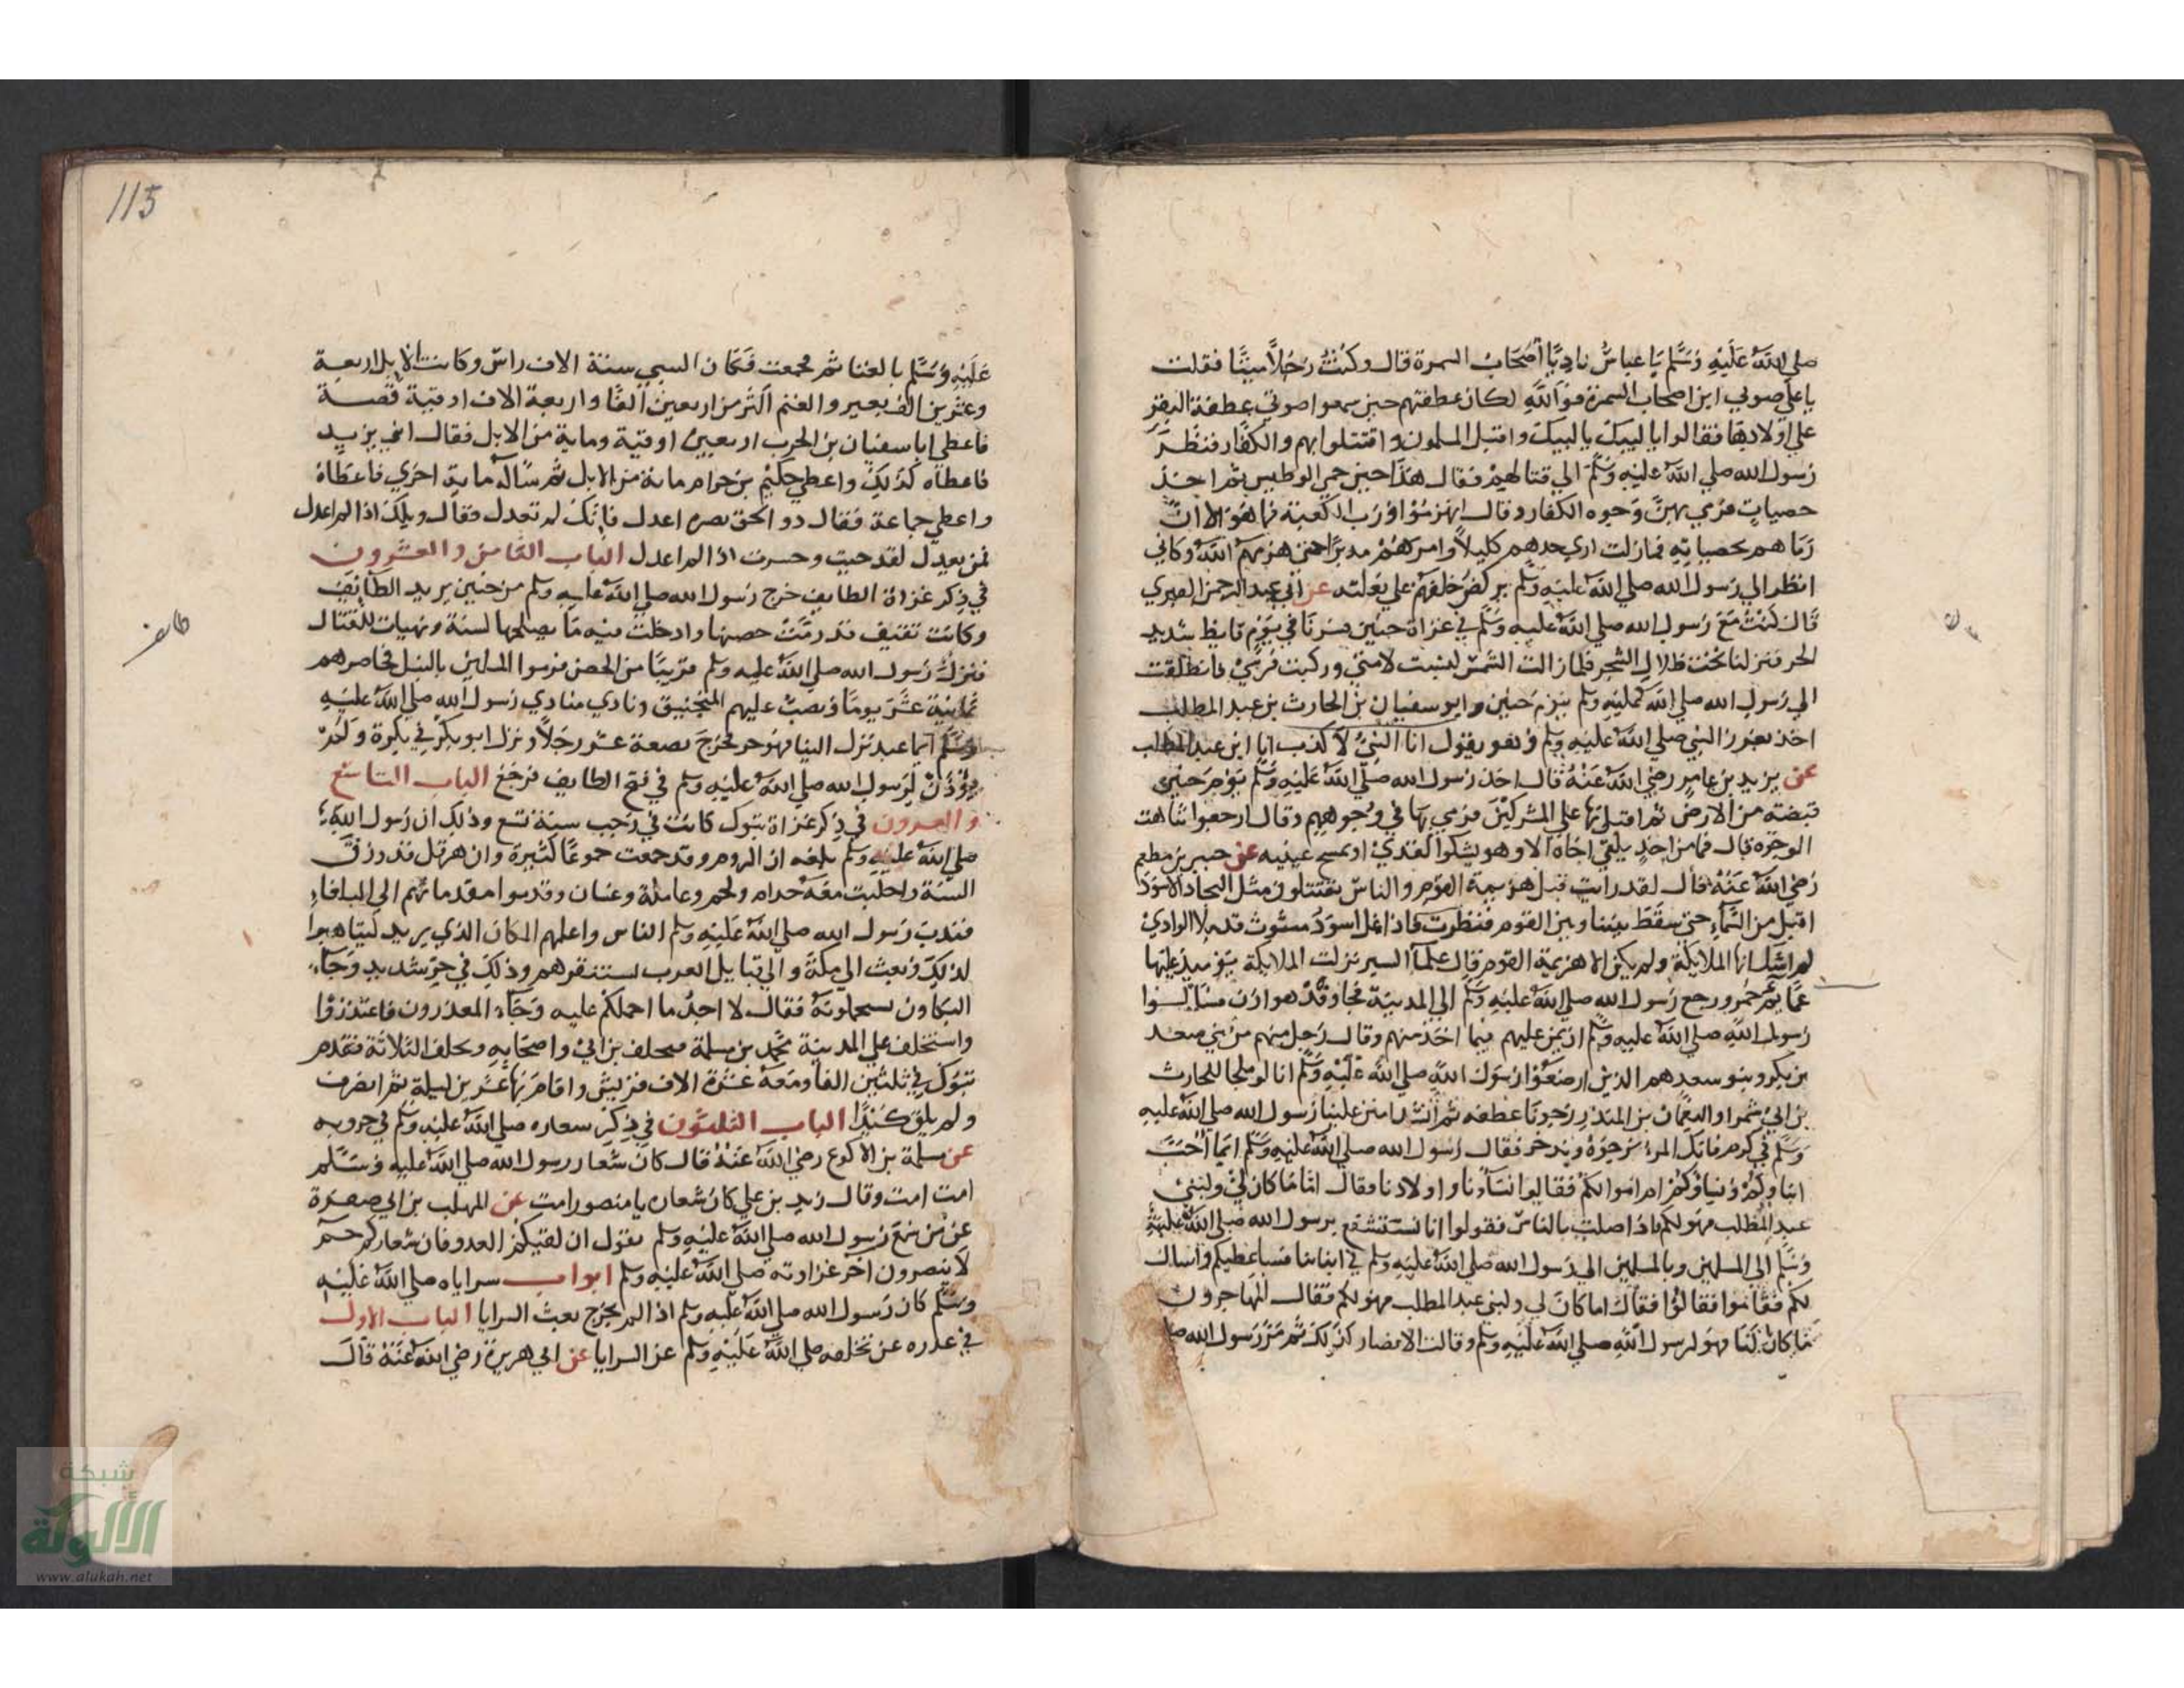 صلي الله عليه وسلم يا عباس ناد يا أصحاب السمرة قال وكنت رجلا صيتا فقلت
يا علي صوتي اين اصحاب السمرة فوالله لكان عطفتهم حين سمعوا صوتي عطفة البقر
علي اولادها فقالوا يا لبيك يا لبيك واقبل المسلمون واقتتلوا هم والكفار فنظر
رسول الله صلي الله عليه وسلم الي قتالهم فقال هذا حين حمي الوطيس ثم اخذ
حصيات فرمي بهن وجوه الكفار وقال انهزموا ورب الكعبة فما هو الا ان
رماهم بحصياته فمازلت اري حدهم كليلا وامرهم مدبرا حتي هزمهم الله وكاني
انظر الي رسول الله صلي الله عليه وسلم يركض خلفهم علي بغلته عن ابي عبد الرحمن الفهري
قال كنت مع رسول الله صلي الله عليه وسلم في غزاة حنين فسرنا في يوم قايظ شديد
الحر فنزلنا تحت ظلال الشجر فلما زالت الشمس لبست لامتي وركبت فرسي فانطلقت
الي رسول الله صلي الله عليه وسلم يوم حنين وابو سفيان بن الحارث بن عبد المطلب
اخذ بغرز النبي صلي الله عليه وسلم وهو يقول انا النبي لا كذب انا ابن عبد المطلب
عن يزيد بن عامر رضي الله عنه قال اخذ رسول الله صلي الله عليه وسلم يوم حنين
قبضة من الارض ثم اقبل بها علي المشركين فرمي بها في وجوههم وقال ارجعوا شاهت
الوجوه قال فما من احد يلقي اخاه الا وهو يشكوا القذي او يمسح عينيه عن جبير بن مطعم
رضي الله عنه قال لقد رايت قبل هزيمة القوم والناس يقتتلون مثل البجاد الاسود
اقبل من السماء حتي سقط بيننا وبين القوم فنظرت فاذا نمل اسود مبثوث قد ملا الوادي
لم اشك انها الملايكة ولم يكن الا هزيمة القوم قال علماء السير نزلت الملايكة يوميذ عليها
عمايم حمر ورجع رسول الله صلي الله عليه وسلم الي المدينة فجا وفد هوازن فسالوا
رسول الله صلي الله عليه وسلم ان يمن عليهم فيما اخذ منهم وقال رجل منهم من بني سعد
بن بكر وبنو سعد هم الذين ارضعوا رسول الله صلي الله عليه وسلم انا لو ملحنا للحارث
بن ابي شمر او النعمان بن المنذر رجونا عطفه ثم أنشد امنن علينا رسول الله صلي الله عليه
وسلم في كرم فانك المرء نرجوه وندخر فقال رسول الله صلي الله عليه وسلم ايما احب
ابناوكم ونساوكم ام اموالكم فقالوا نساؤنا واولادنا فقال اما ما كان لي ولبني
عبد المطلب فهو لكم فاذا صليت بالناس فقولوا انا نستشفع برسول الله صلي الله عليه
وسلم الي المسلمين وبالمسلمين الي رسول الله صلي الله عليه وسلم في ابناينا فساعطيكم واسال
لكم فقاموا فقالوا فقال اما ما كان لي ولبني عبد المطلب فهو لكم فقال المهاجرون
ما كان لنا فهو لرسول الله صلي الله عليه وسلم وقالت الانصار كذلك ثم مر رسول الله صلي
115
عليه وسلم بالغنايم فجمعت فكان السبي ستة الاف راس وكانت الابل اربعة
وعشرين الف بعير والغنم اكثر من اربعين الفا واربعة الاف اوقية فضة
فاعطي ابا سفيان بن الحرب اربعين اوقية وماية من الابل فقال ابني يزيد
فاعطاه كذلك واعطي حكيم بن حزام ماية من الابل ثم ساله ماية اخري فاعطاه
واعطي جماعة فقال ذو الخويصره اعدل فانك لم تعدل فقال ويلك اذا لم اعدل
فمن يعدل لقد خبت وخسرت اذا لم اعدل الباب الثامن والعشرون
في ذكر غزاة الطايف خرج رسول الله صلي الله عليه وسلم من حنين يريد الطائف
وكانت ثقيف قد رمت حصنها وادخلت فيه ما يصلحها لسنة وتهيات للقتال
فنزل رسول الله صلي الله عليه وسلم قريبا من الحصن فرموا المسلمين بالنبل فحاصرهم
ثمانية عشر يوما ونصب عليهم المنجنيق ونادي منادي رسول الله صلي الله عليه
وسلم ايما عبد نزل الينا فهو حر فخرج بضعة عشر رجلا ونزل ابو بكرة في بكرة ولم
يؤذن لرسول الله صلي الله عليه وسلم في فتح الطايف فرجع الباب التاسع
والعشرون في ذكر غزاة تبوك كانت في رجب سنة تسع وذلك ان رسول الله
صلي الله عليه وسلم بلغه ان الروم قد جمعت جموعا كثيرة وان هرقل قد رزق
السنة واجلبت معه جذام ولخم وعاملة وغسان وقدموا مقدماتهم الي البلقاء
فندب رسول الله صلي الله عليه وسلم الناس واعلمهم المكان الذي يريد ليتاهبوا
لذلك وبعث الي مكة والي قبايل العرب يستنفرهم وذلك في حر شديد وجاء
البكاون يستحملونه فقال لا اجد ما احملكم عليه وجاء المعذرون فاعتذروا
واستخلف علي المدينة محمد بن مسلمة فتخلف بن ابي واصحابه وتخلف الثلاثة فقدم
تبوك في ثلثين الفا ومعه عشرة الاف فرس واقام بها عشرين ليلة ثم انصرف
ولم يلق كيدا الباب الثلثون في ذكر شعاره صلي الله عليه وسلم في حروبه
عن سلمة بن الاكوع رضي الله عنه قال كان شعار رسول الله صلي الله عليه وسلم
امت امت وقال زيد بن علي كان شعاره يا منصور امت عن المهلب بن ابي صفرة
عن من سمع رسول الله صلي الله عليه وسلم يقول ان لقيكم العدو فان شعاركم حم
لا ينصرون آخر غزاوته صلي الله عليه وسلم ابواب سراياه صلي الله عليه
وسلم كان رسول الله صلي الله عليه وسلم اذا لم يخرج بعث السرايا الباب الاول
في عذره عن تخلفه صلي الله عليه وسلم عن السرايا عن ابي هريرة رضي الله عنه قال
شبكة
الألوكة
www.alukah.net